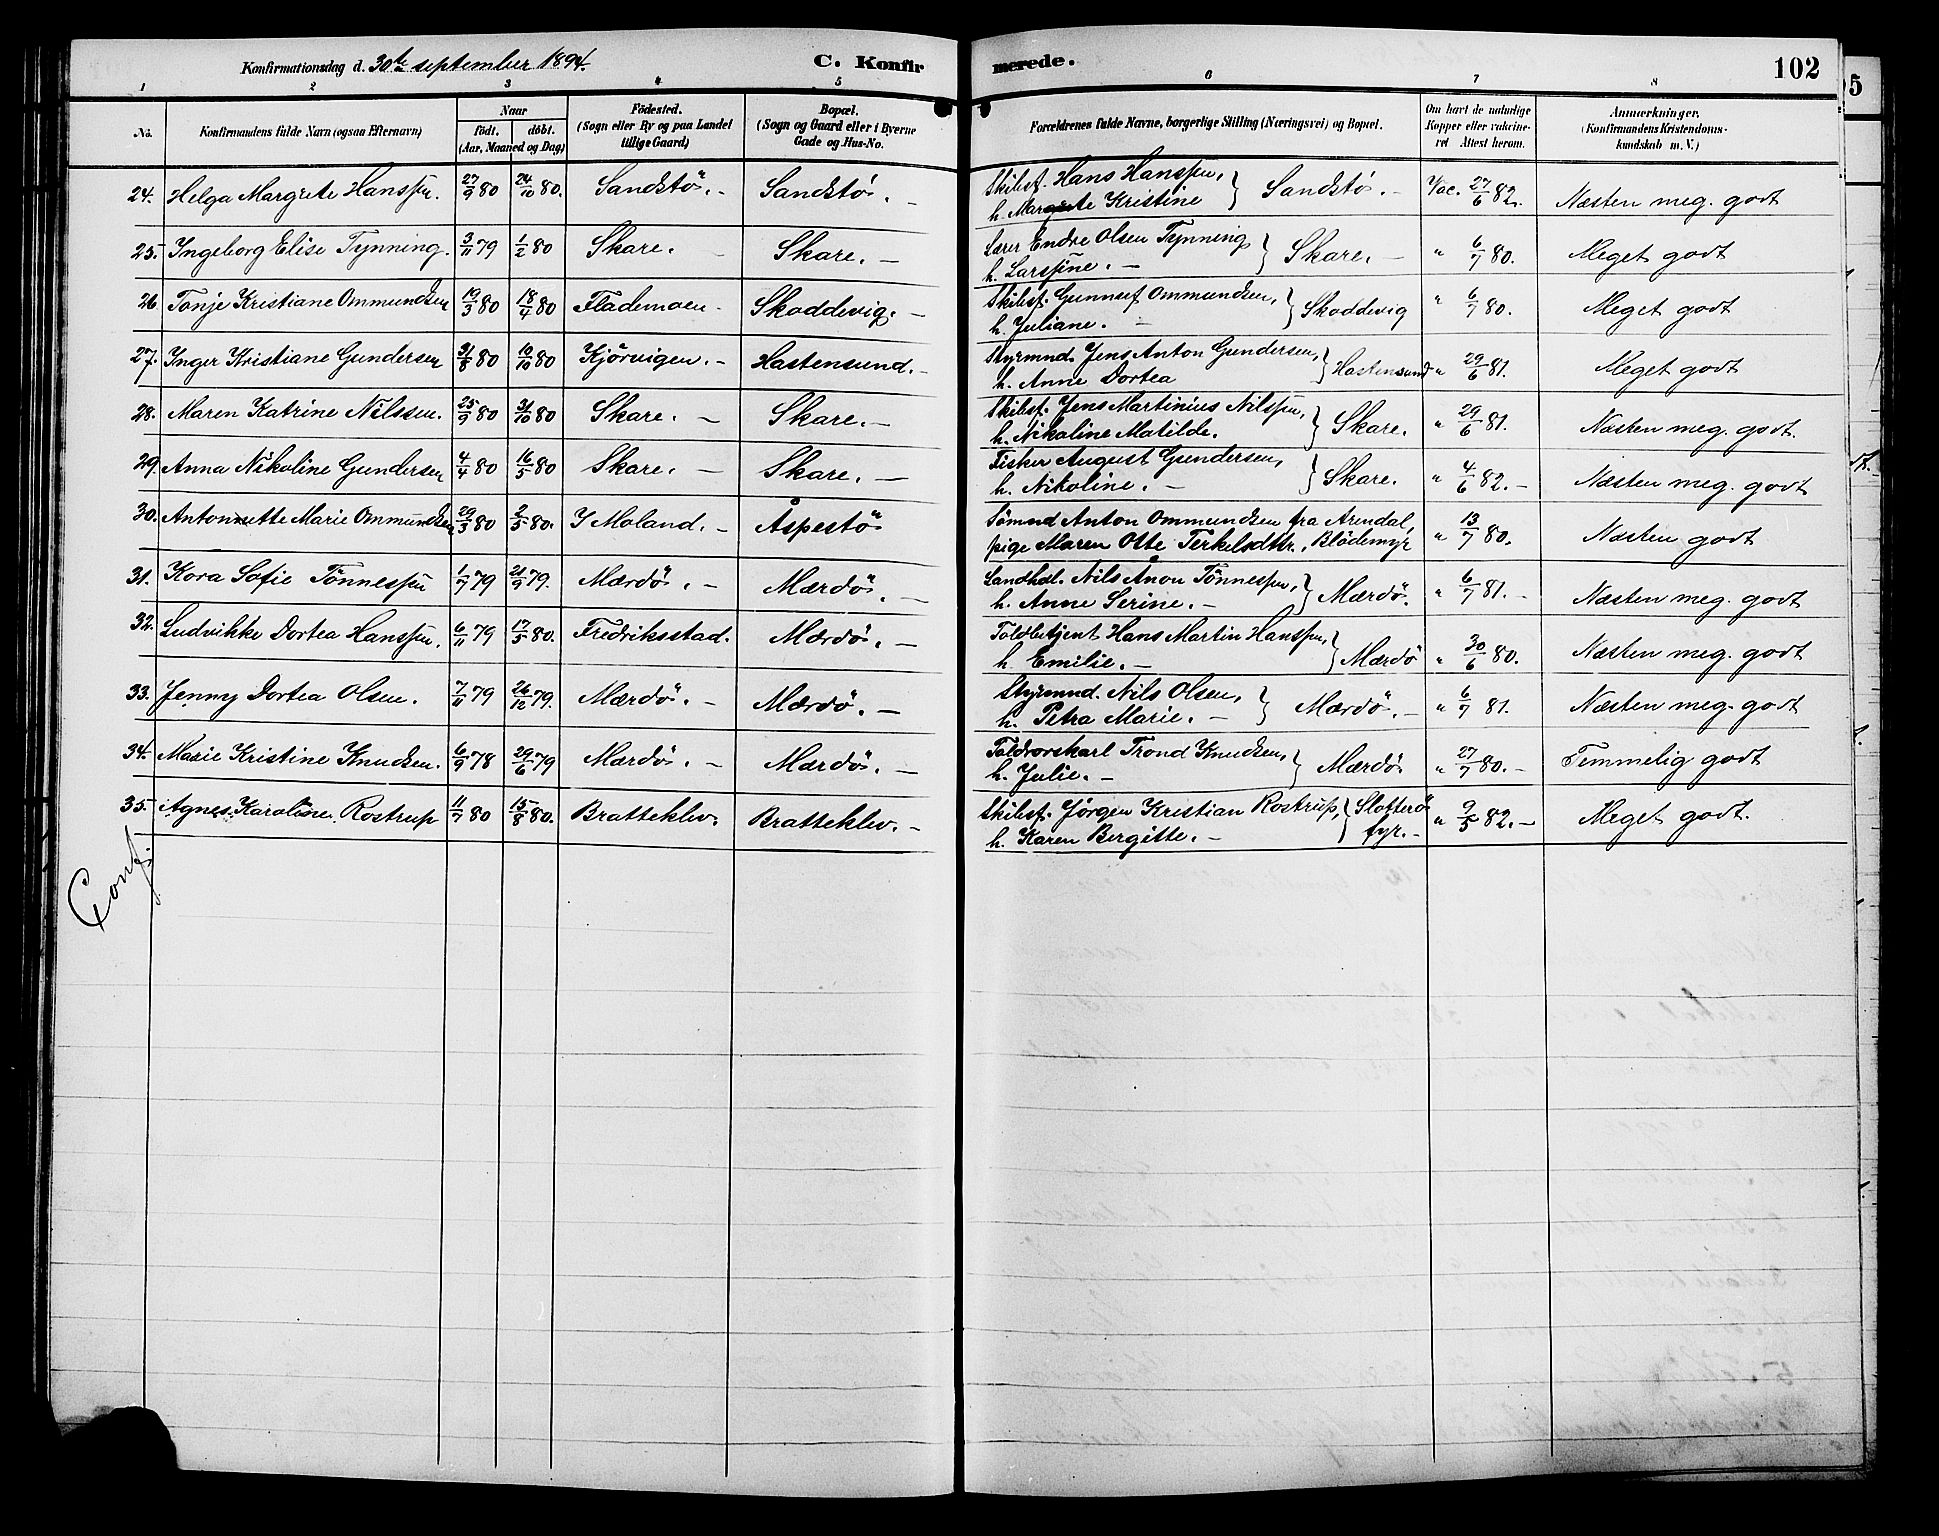 Konfirmationsdag d. 30te september 1894.
C. Konfirmerede.
102
1 2 3 4 5 6 7 8
No.
Konfirmandens fulde Navn (ogsaa Efternavn)
Naar
födt. döbt.
(Aar, Maaned og Dag)
Födested.
(Sogn eller By og paa Landet
tillige Gaard)
Bopæl.
(Sogn og Gaard eller i Byerne
Gade og Hus-No.
Forældrenes fulde Navne, borgerlige Stilling (Næringsvei) og Bopæl.
Om havt de naturlige
Kopper eller vakcine-
ret Attest herom.
Anmærkninger.
(Konfirmandens Kristendoms-
kundskab m. V.)
24. Helga Margrete Hanssen. 27/9 80 24/10 80. Sandstö. - Sandstö. - Skibsf. Hans Hanssen, h. Margrete Kristine } Sandstö. - Vac. 27/6 82. Næsten meg. godt
25. Ingeborg Elise Tynning. 3/11 79 1/2 80 Skare. - Skare. - Lærer Endre Olsen Tynning h. Larssine. - } Skare. - " 6/7 80. Meget godt
26. Tonje Kristiane Ommundsen 19/3 80 18/4 80 Flademoen - Skoddevig. - Skibsf. Gunnuf Ommundsen, h. Juliane. - } Skoddevig " 6/7 80. Meget godt
27. Inger Kristiane Gundersen 31/8 80 10/10 80 Kjörvigen. - Hastensund. - Styrmnd. Jens Anton Gundersen, h. Anne Dortea } Hastensund " 29/6 81. Meget godt
28. Maren Katrine Nilssen. 25/9 80 31/10 80 Skare. - Skare. - Skibsf. Jens Martinius Nilssen, h. Nikoline Matilde. } Skare. " 29/6 81. Næsten meg. godt.
29. Anna Nikoline Gundersen 4/4 80 16/5 80 Skare. - Skare. - Fisker August Gundersen, h. Nikoline. - } Skare. " 4/6 82. - Næsten meg. godt
30. Antonette Marie Ommundsen 29/3 80 2/5 80. I Moland. - Åspestö Sömnd Anton Ommundsen fra Arendal, pige Maren Otte Terkelsdttr., Blödemyr " 13/7 80. Næsten godt
31. Kora Sofie Tönnessen 1/7 79 21/9 79. Mærdö. - Mærdö. - Landhdl. Nils Ånon Tönnessen, h. Anne Serine. - } Mærdö. " 6/7 81. - Næsten meg. godt
32. Ludvikke Dortea Hanssen. 6/11 79 17/5 80. Fredriksstad. Mærdö. - Toldbetjent Hans Martin Hanssen, h. Emilie. - } Mærdö " 30/6 80. Næsten meg. godt
33. Jenny Dortea Olsen. 7/11 79 26/12 79. Mærdö. - Mærdö. - Styrmnd. Nils Olsen, h. Petra Marie. - } Mærdö. - " 6/7 81. Næsten meg. godt
34. Marie Kristine Knudsen. 6/9 78 29/6 79 Mærdö. - Mærdö. - Toldrorskarl Trond Knudsen, h. Julie. - } Mærdö " 27/7 80. - Temmelig godt
35. Agnes Karoline Rostrup 11/7 80 15/8 80. Bratteklev. Bratteklev. - Skibsf. Jörgen Kristian Rostrup, h. Karen Bergitte. - } Slotterö fyr. - " 9/5 82. - Meget godt.
Conf.